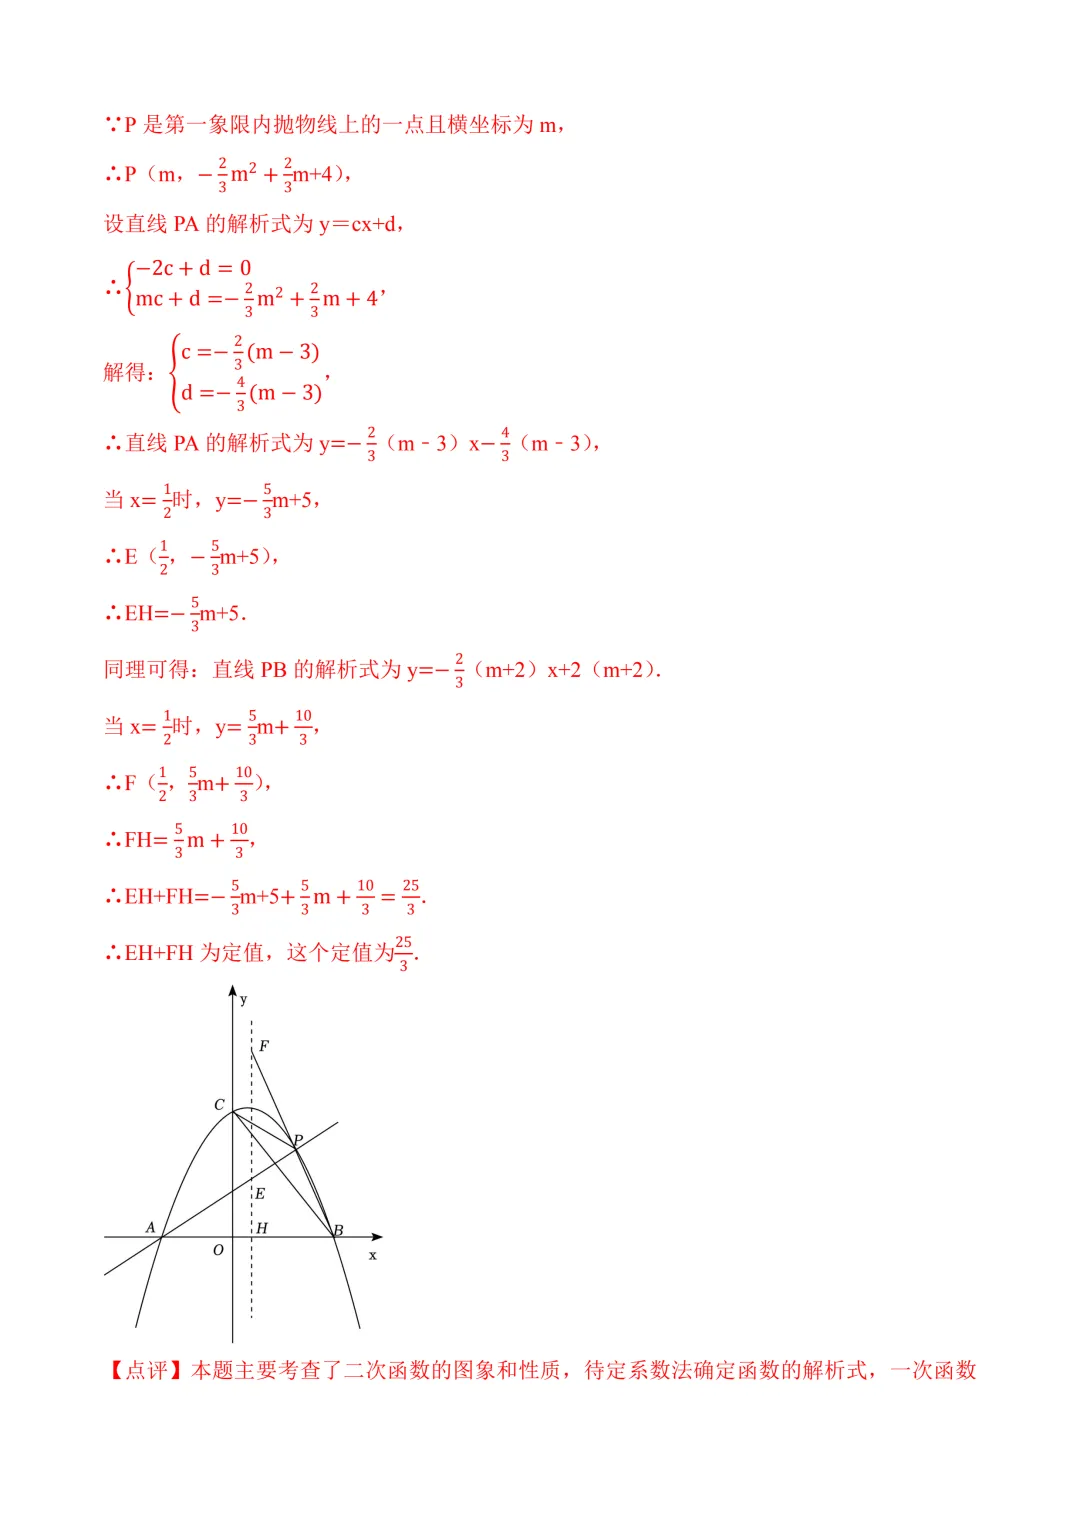 ∵P 是第一象限内抛物线上的一点且横坐标为 m，
∴P（m，−2/3m²+2/3m+4），
设直线 PA 的解析式为 y＝cx+d，
∴{−2c+d=0
mc+d=−2/3m²+2/3m+4，
解得：{c=−2/3(m−3)
d=−4/3(m−3)，
∴直线 PA 的解析式为 y=−2/3（m﹣3）x−4/3（m﹣3），
当 x=1/2时，y=−5/3m+5，
∴E（1/2，−5/3m+5），
∴EH=−5/3m+5．
同理可得：直线 PB 的解析式为 y=−2/3（m+2）x+2（m+2）．
当 x=1/2时，y=5/3m+10/3，
∴F（1/2，5/3m+10/3），
∴FH=5/3m+10/3，
∴EH+FH=−5/3m+5+5/3m+10/3=25/3．
∴EH+FH 为定值，这个定值为25/3．
y
F
C
P
E
A
H
B
O
x
【点评】本题主要考查了二次函数的图象和性质，待定系数法确定函数的解析式，一次函数